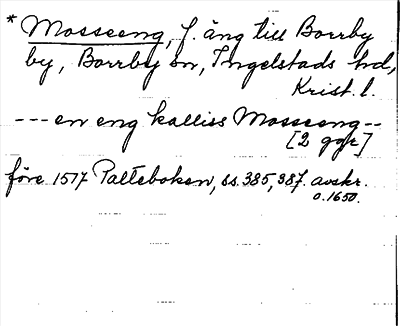 * Mosseeng, f. äng till Borrby
by, Borrby sn, Ingelstads hd,
Krist. l.
--- en eng kalliss Mosseeng --
[2 ggr]
före 1517 Palteboken, ss. 385, 387. avskr.
o. 1650.